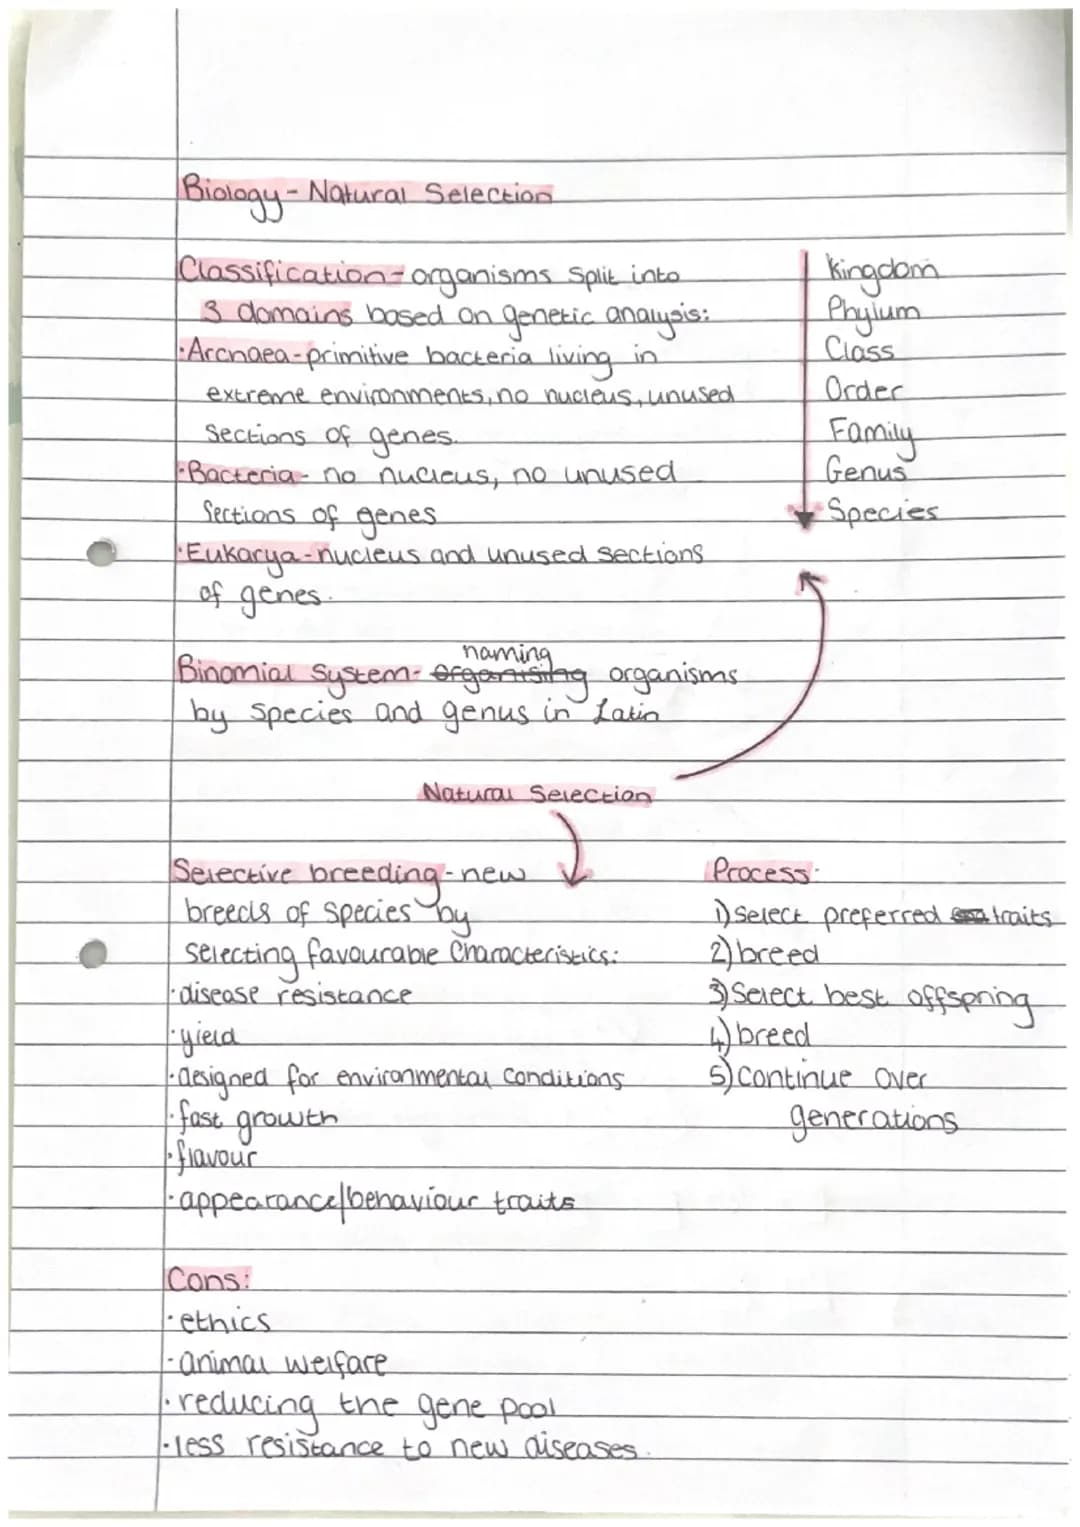 Biology - Natural Selection
Classification - organisms split into
3 domains based on genetic analysis:
· Archaea - primitive bacteria living in
extreme environments, no nucleus, unused
sections of genes.
· Bacteria - no nucleus, no unused
sections of genes
· Eukarya - nucleus and unused sections
of genes.
Kingdom
Phylum
Class
Order
Family
Genus
Species
naming
Binomial System - organising organisms
by species and genus in Latin
Natural Selection
Selective breeding - new
breeds of species by
selecting favourable characteristics:
· disease resistance
· yield
· designed for environmental conditions
· fast growth
· flavour
· appearance/behaviour traits
Process:
1) Select preferred traits
2) breed
3) Select best offspring
4) breed
5) Continue over
generations
Cons:
· ethics
· animal welfare
· reducing the gene pool
· less resistance to new diseases.